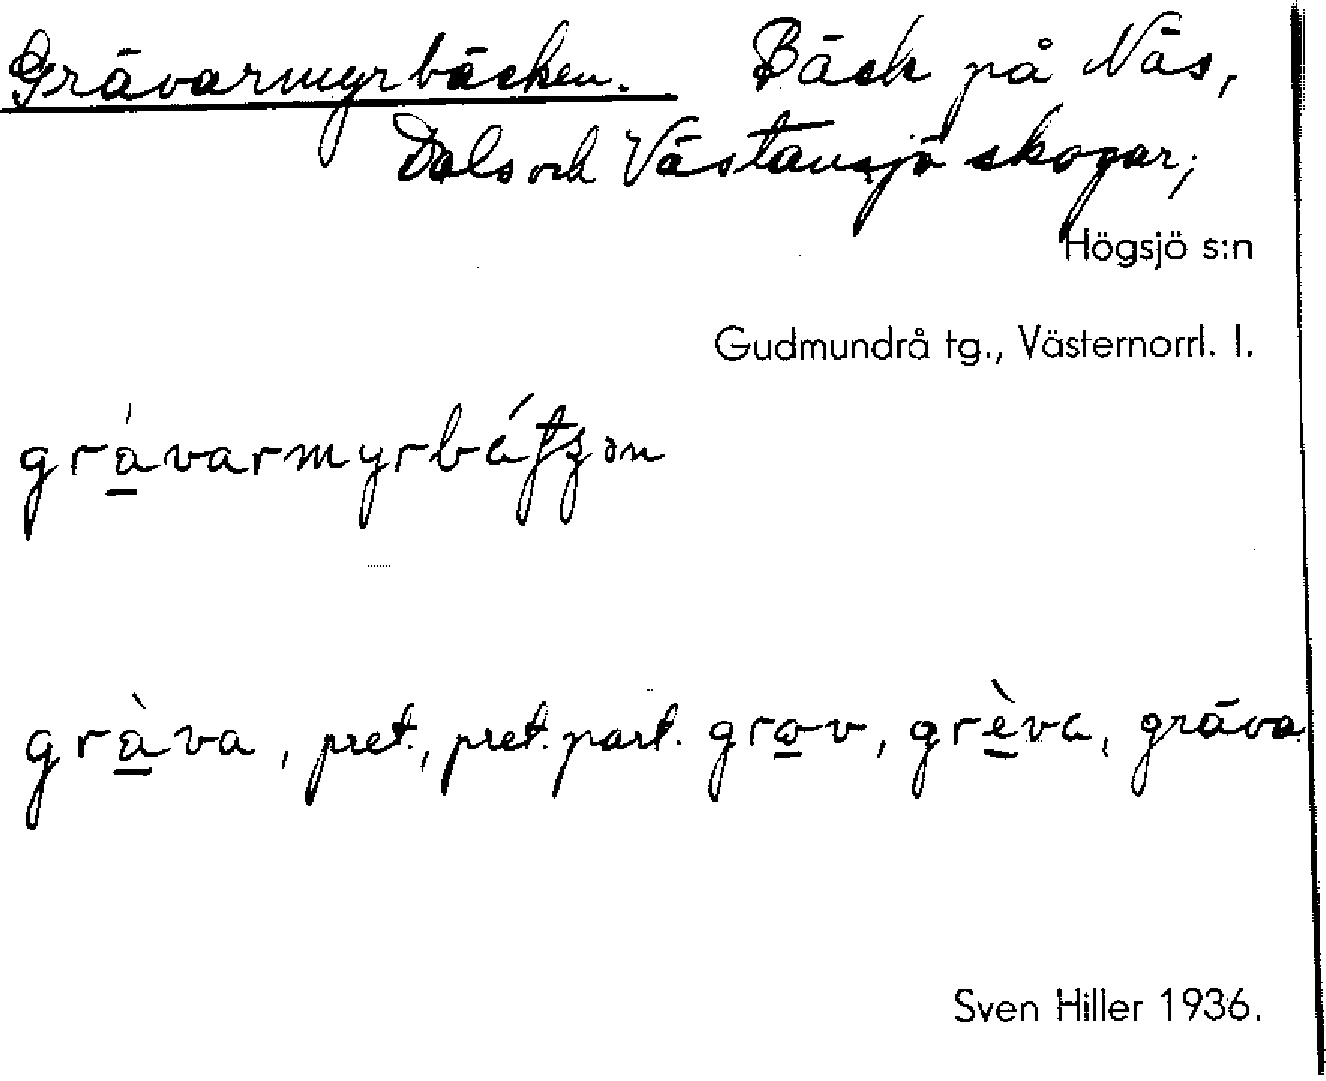 Grävarmyrbäcken. Bäck på Näs,
Dals och Västansjö skogar,
Högsjö s:n
Gudmundrå tg., Västernorrl. l.
gràvarmyrbátʃən
gràva, pret., pret. part. grov, grèva, gräva
Sven Hiller 1936.